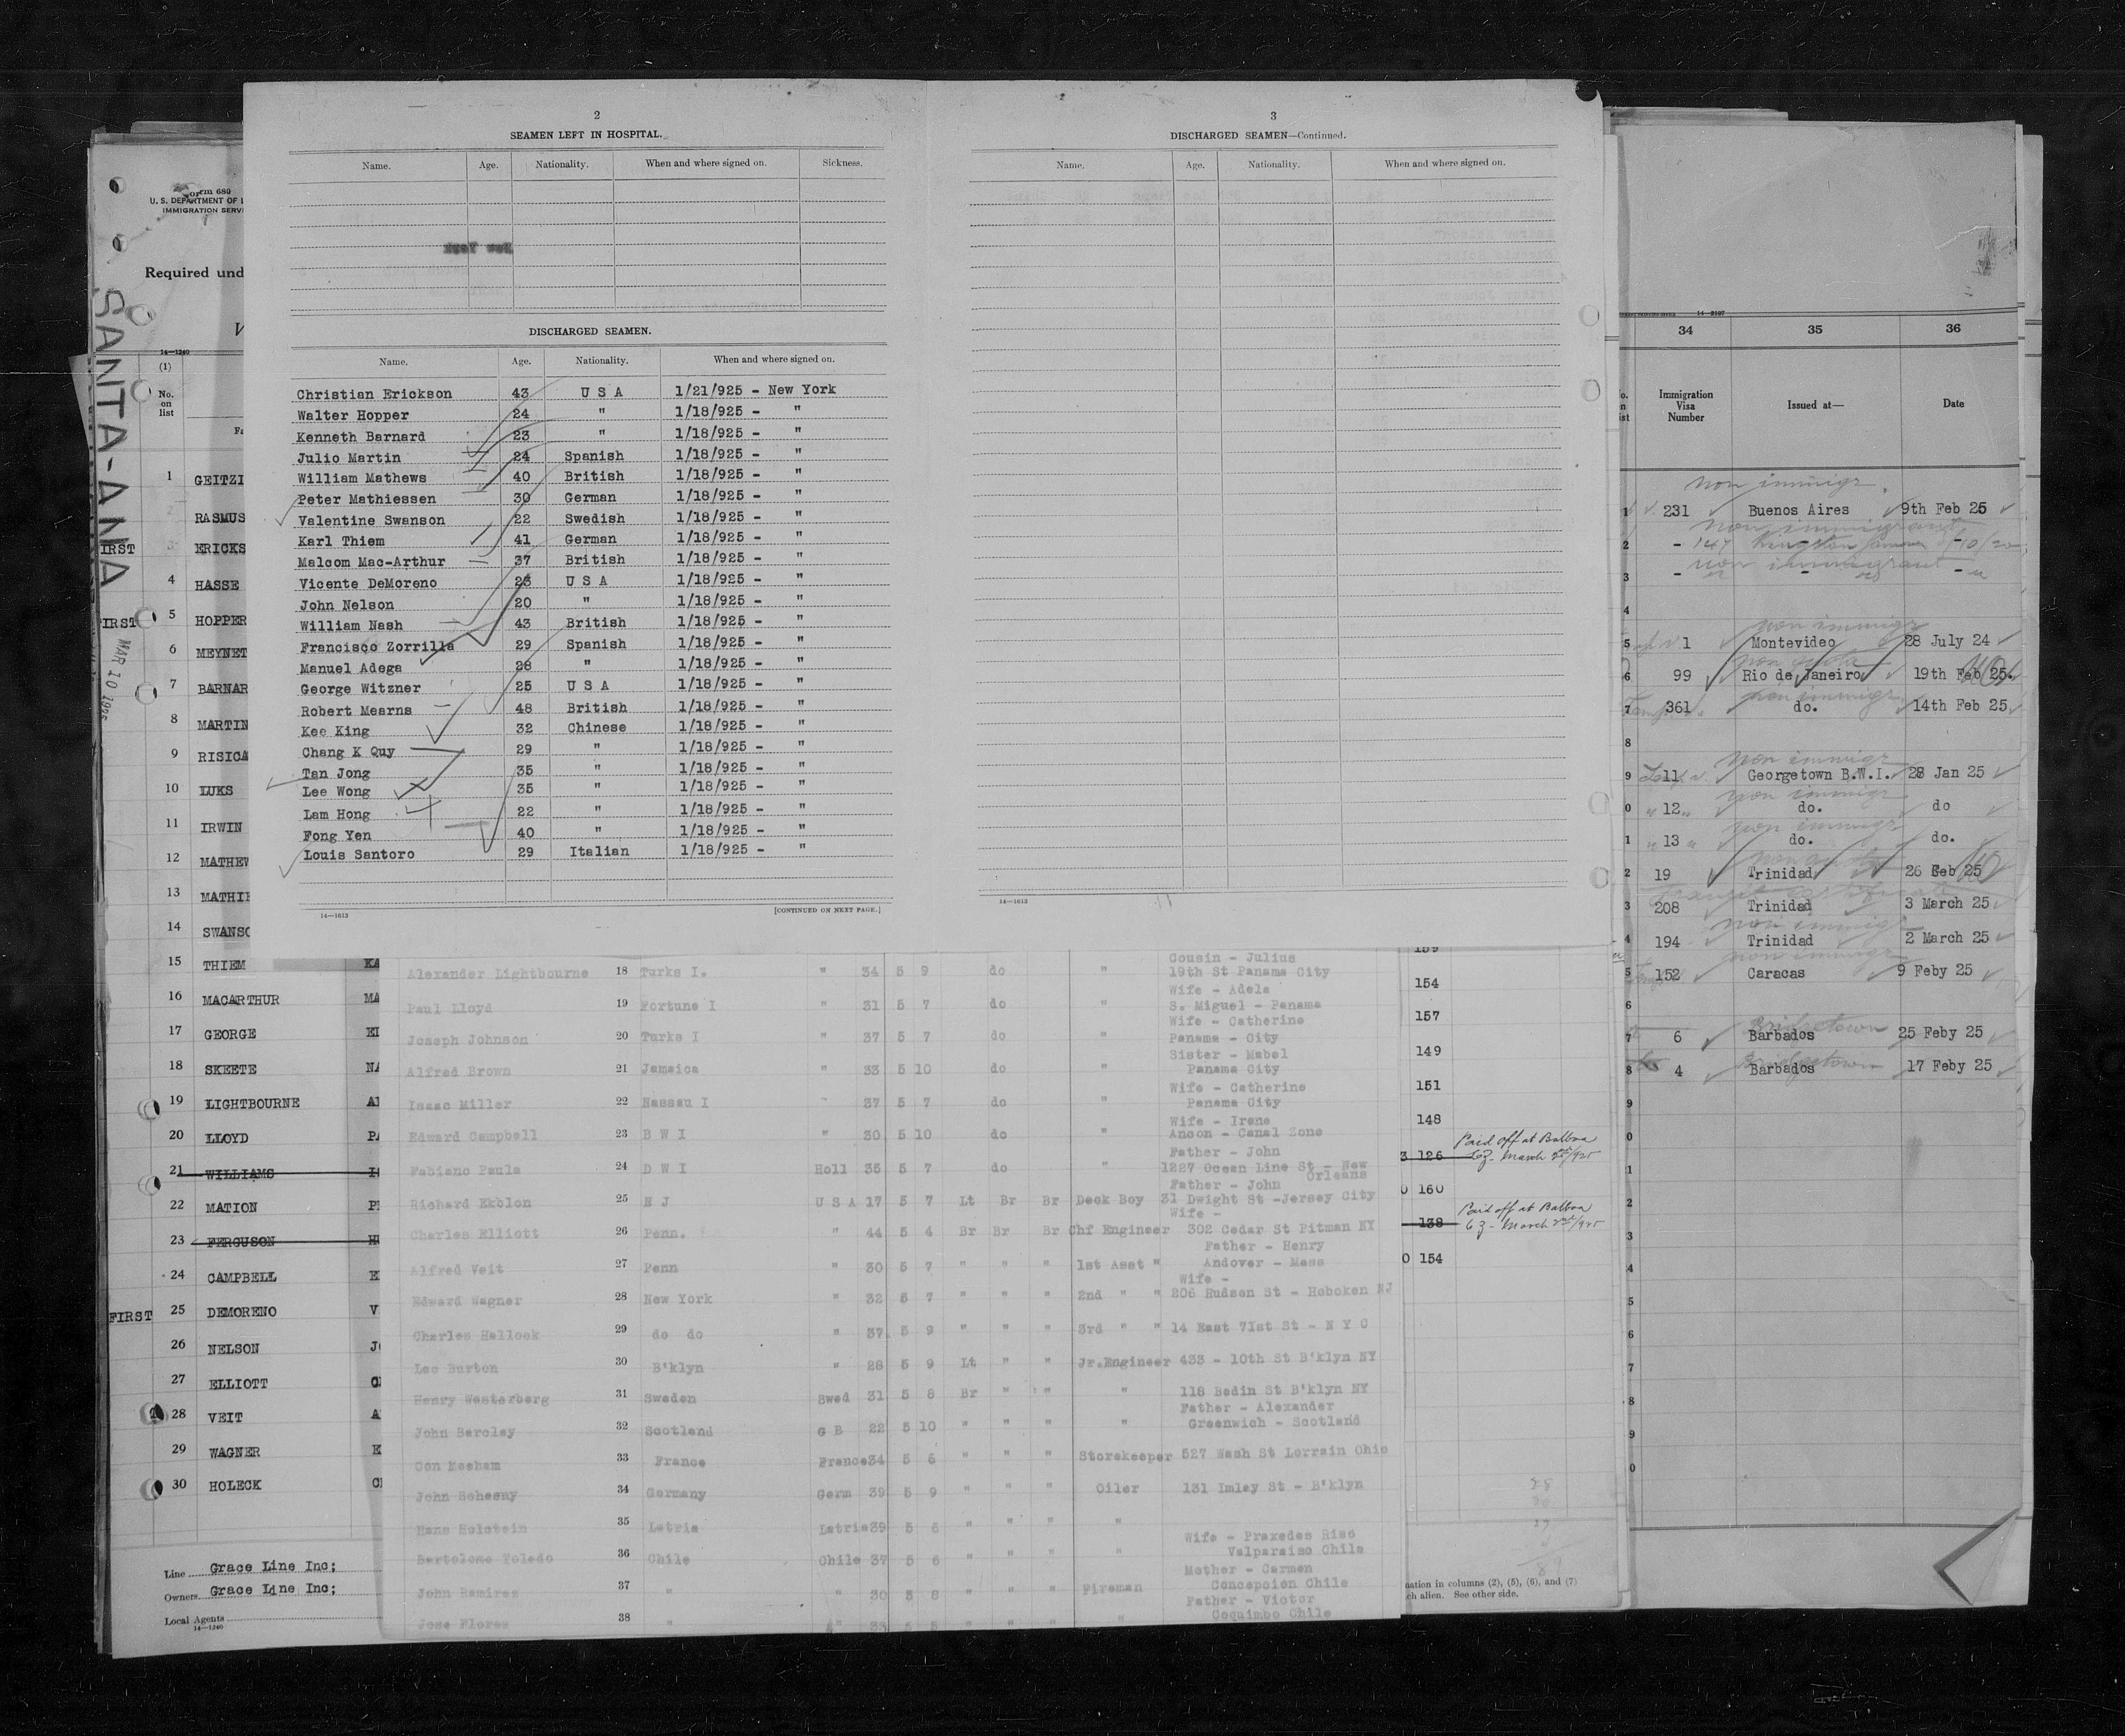 2
SEAMEN LEFT IN HOSPITAL.
Name. Age. Nationality. When and where signed on. Sickness.
DISCHARGED SEAMEN.
Name. Age. Nationality. When and where signed on.
Christian Erickson 43 U S A 1/21/925 - New York
Walter Hopper 24 " 1/18/925 - "
Kenneth Barnard 23 " 1/18/925 - "
Julio Martin 24 Spanish 1/18/925 - "
William Mathews 40 British 1/18/925 - "
Peter Mathiessen 30 German 1/18/925 - "
Valentine Swanson 22 Swedish 1/18/925 - "
Karl Thiem 41 German 1/18/925 - "
Malcom Mac-Arthur 37 British 1/18/925 - "
Vicente DeMoreno U S A 1/18/925 - "
John Nelson 20 " 1/18/925 - "
William Nash 43 British 1/18/925 - "
Francisco Zorrilla 29 Spanish 1/18/925 - "
Manuel Adega 28 " 1/18/925 - "
George Witzner 25 U S A 1/18/925 - "
Robert Mearns 48 British 1/18/925 - "
Kee King 32 Chinese 1/18/925 - "
Chang K Quy 29 " 1/18/925 - "
Tan Jong 35 " 1/18/925 - "
Lee Wong 35 " 1/18/925 - "
Lam Hong 22 " 1/18/925 - "
Fong Yen 40 " 1/18/925 - "
Louis Santoro 29 Italian 1/18/925 - "
14—1613
[CONTINUED ON NEXT PAGE.]
3
DISCHARGED SEAMEN—Continued.
Name. Age. Nationality. When and where signed on.
14—1613
Form 689
U. S. DEPARTMENT OF
IMMIGRATION
Required
SANTA-ANA
MAR 10
14—1240
(1)
No. on list
1 GEITZI
RASMUS
FIRST 3 ERICKS
4 HASSE
FIRST 5 HOPPER
6 MEYNET
7 BARNAR
8 MARTIN
9 RISICA
10 LUKS
11 IRWIN
12 MATHEW
13 MATHIE
14 SWANSO
15 THIEM KA
16 MACARTHUR MA
17 GEORGE
18 SKEETE NA
19 LIGHTBOURNE
20 LLOYD
21 WILLIAMS
22 MATION
23 FERGUSON
24 CAMPBELL
FIRST 25 DEMORENO V
26 NELSON
27 ELLIOTT
28 VEIT A
29 WAGNER
30 HOLECK
Line Grace Line Inc;
Owners Grace Line Inc;
Local Agents
14—1240
Cousin - Julius
Alexander Lightbourne 18 Turks I. " 34 5 9 do " 19th St Panama City
Wife - Adela
Paul Lloyd 19 Fortune I " 31 5 7 do " S. Miguel - Panama
Wife - Catherine
Joseph Johnson 20 Turks I " 37 5 7 do " Panama - City
Sister - Mabel
Alfred Brown 21 Jamaica " 33 5 10 do " Panama City
Wife - Catherine
Isaac Miller 22 Nassau I " 37 5 7 do " Panama City
Wife - Irene
Edward Campbell 23 B W I " 30 5 10 do " Ancon - Canal Zone
Father - John
Fabiano Paula 24 D W I Holl 35 5 7 do " 1227 Ocean Line St - New Orleans
Father - John
Richard Ekblon 25 N J U S A 17 5 7 Lt Br Br Deck Boy 31 Dwight St -Jersey City
Wife -
Charles Elliott 26 Penn. " 44 5 4 Br Br Br Chf Engineer 302 Cedar St Pitman NY
Father - Henry
Alfred Veit 27 Penn " 30 5 7 " " " 1st Asst " Andover - Mass
Wife -
Edward Wagner 28 New York " 32 5 7 " " " 2nd " " 206 Hudson St - Hoboken NJ
Charles Hallock 29 do do " 37 5 9 " " " 3rd " " 14 East 71st St - N Y C
Leo Burton 30 B'klyn " 28 5 9 Lt " " Jr.Engineer 433 - 10th St B'klyn NY
Henry Westerberg 31 Sweden Swed 31 5 8 Br " " " 118 Bedin St B'klyn NY
Father - Alexander
John Barclay 32 Scotland G B 22 5 10 " " " " Greenwich - Scotland
Con Keeham 33 France France 34 5 6 " " " Storekeeper 527 Wash St Lorrain Ohio
John Schesny 34 Germany Germ 39 5 9 " " " Oiler 131 Imlay St - B'klyn
Hans Holstein 35 Latria Latria 39 5 6 " " " "
Wife - Praxedes Riso
Bartolome Toledo 36 Chile Chile 37 5 6 " " " " Valparaiso Chile
Mother - Carmen
John Ramirez 37 " " 30 5 8 " " " Fireman Concepcion Chile
Father - Victor
Jose Flores 38 " " 33 5 5 " " " " Coquimbo Chile
159
154
157
149
151
148
126 Paid off at Balboa CZ - March 2nd/925
160
138 Paid off at Balboa CZ - March 2nd/925
154
mation in columns (2), (5), (6), and (7)
ch alien. See other side.
14—2107
34 35 36
Immigration Visa Number Issued at— Date
non immigr
1 231 Buenos Aires 9th Feb 25
non immigrant
2 - 147 Kingston
non immigrant
3
4
non immigr
5 1 Montevideo 28 July 24
6 99 Rio de Janeiro 19th Feb 25.
non immigr
7 361 do. 14th Feb 25
8
non immigr
9 11 Georgetown B.W.I. 28 Jan 25
non immigr
0 12 do. do
non immigr
1 13 do. do.
2 19 Trinidad 26 Feb 25
3 208 Trinidad 3 March 25
non immigr
4 194 Trinidad 2 March 25
non immigr
5 152 Caracas 9 Feby 25
6
Bridgetown
7 6 Barbados 25 Feby 25
Bridgetown
8 4 Barbados 17 Feby 25
9
0
1
2
3
4
5
6
7
8
9
0